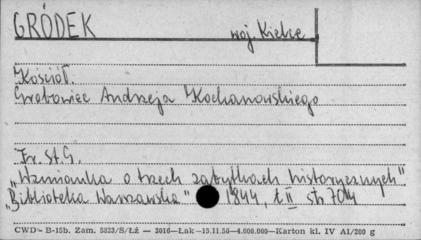 GRÓDEK woj. Kielce
Kościół.
Grobowiec Andrzeja Kochanowskiego
Fr. St. G.
"Wzmianka o trzech zabytkach historycznych"
"Biblioteka Warszawska" 1844, t. II str. 704
CWD - B-15b. Zam. 5823/S/Łż — 3016 — Łak — 15.11.56 — 4.000.000 — Karton kl. IV A1/200 g